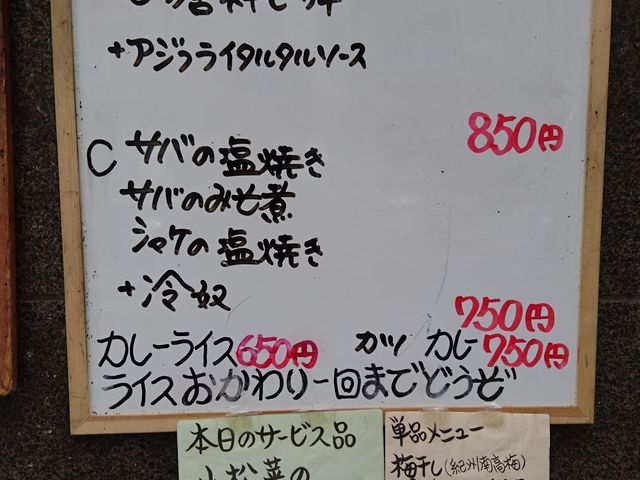 +アジフライタルタルソース
850円
C サバの塩焼き
サバのみそ煮
シャケの塩焼き
+冷奴
750円
カレーライス650円 カツカレー750円
ライスおかわり一回までどうぞ
本日のサービス品
小松菜の
単品メニュー
梅干し(紀州南高梅)